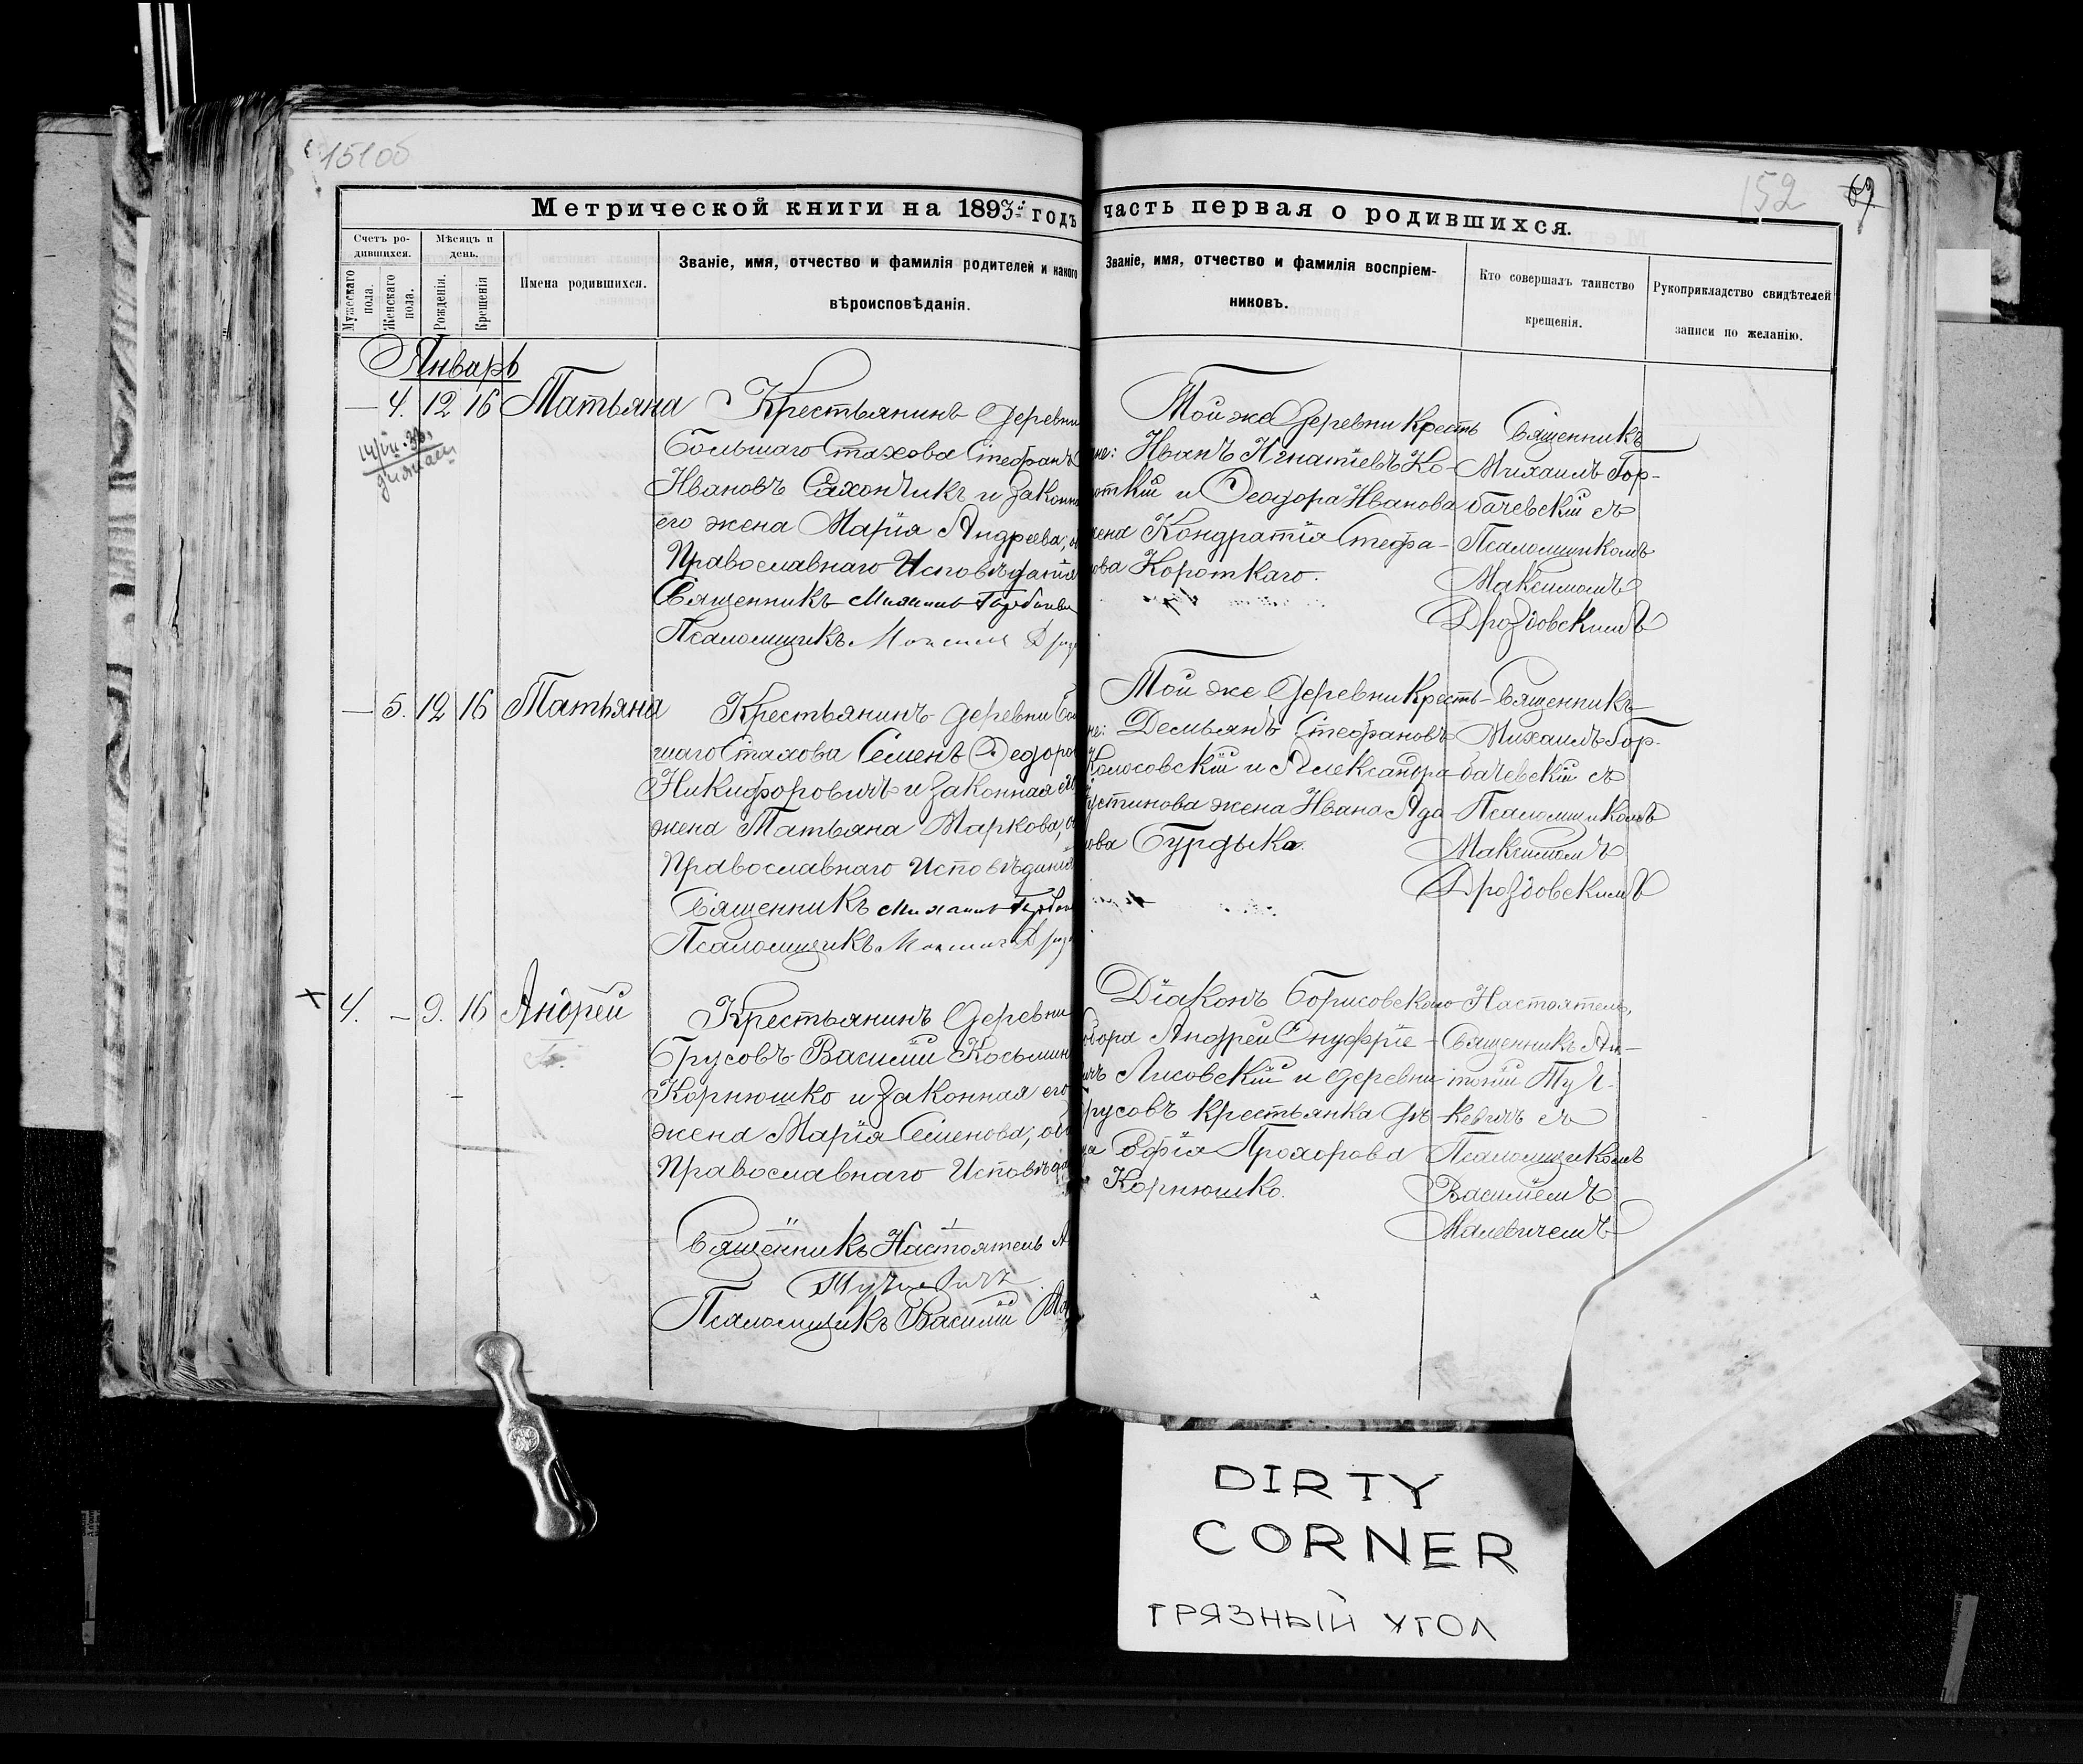 151об
152
69
Метрической книги на 1893й годъ
часть первая о родившихся.
Счетъ родившихся.
Мужескаго пола.
Женскаго пола.
Мѣсяцъ и день.
Рожденія.
Крещенія
Имена родившихся.
Званіе, имя, отчество и фамилія родителей и какого
вѣроисповѣданія.
Званіе, имя, отчество и фамилія воспріем-
никовъ.
Кто совершалъ таинство
крещенія.
Рукоприкладство свидѣтелей
записи по желанію.
Январь
— 4. 12 16 Татьяна
Крестьянинъ деревни
Большаго Стахова Стефанъ
Ивановъ Сахончикъ и законн
его жена Марія Андреева, о
Православнаго Исповѣданія
Священникъ Михаилъ Горбачев
Псаломщикъ Максим Дрозд
Той же деревни Кресть
не: Иванъ Игнатіевъ Ко-
откій и Ѳеодора Иванова
жена Кондратія Стефа-
ова Короткаго.
Священникъ
Михаилъ Гор-
бачевскій съ
Псаломщикомъ
Максимомъ
Дроздовскимъ
— 5. 12 16 Татьяна
Крестьянинъ деревни Бол
шаго Стахова Семенъ Ѳедоро
Никифоровичъ и законная его
жена Татьяна Маркова, о
Православнаго Исповѣданія
Священникъ Михаилъ Горбач
Псаломщикъ Максим Дрозд
Той же деревни Кресть-
не: Демьянъ Стефановъ
Колосовскій и Александра
устинова жена Ивана Ада
ова Бурдыка.
Священникъ
Михаилъ Гор-
бачевскій съ
Псаломщикомъ
Максимомъ
Дроздовскимъ
4. — 9. 16 Андрей
Крестьянинъ деревни
Брусовъ Василій Косьмин
Корнюшко и законная его
жена Марія Семенова; об
Православнаго Исповѣда
Священникъ Настоятель А
Тучкевичъ
Псаломщикъ Василій Ма
Діаконъ Борисовскаго
обора Андрей Онуфріе-
ичъ Лисовскій и деревни
русовъ крестьянка дѣ-
ца Софія Прохорова
Корнюшко.
Настоятель,
Священникъ Ан-
тоній Туч-
кевичъ съ
Псаломщикомъ
Василіемъ
Малевичемъ
DIRTY
CORNER
ГРЯЗНЫЙ УГОЛ